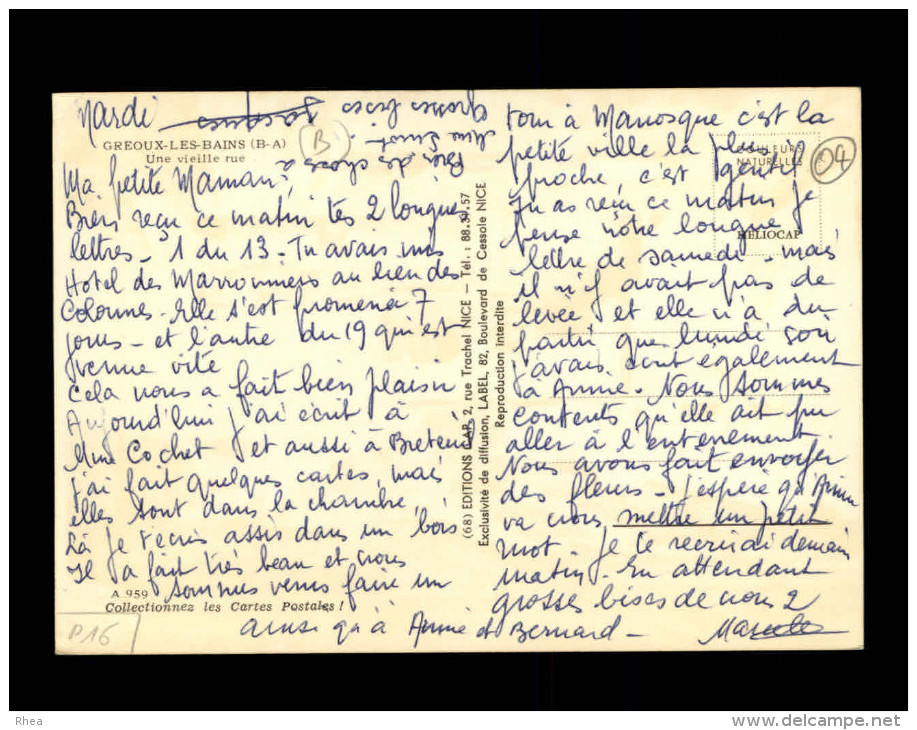 Mardi
GREOUX-LES-BAINS (B-A)
Une vieille rue
B
Ma petite Maman,
Bien reçu ce matin tes 2 longues
lettres - 1 du 13 - Tu avais mis
Hotel des Marronniers au lieu des
Colonnes - Elle s'est promenée 7
jours - et l'autre du 19 qui est
venue vite
Cela nous a fait bien plaisir
Aujourd'hui j'ai écrit à
Mme Cochet et aussi à Breteuil
j'ai fait quelques cartes, mais
elles sont dans la chambre,
Là je t'écris assis dans un bois
Il a fait très beau et nous
sommes venus faire un
A 959
Collectionnez les Cartes Postales !
P16
(68) EDITIONS CAP, 2, rue Trachel NICE — Tél. : 88.37.57
Exclusivité de diffusion, LABEL, 82, Boulevard de Cessole NICE
Reproduction interdite
tour à Manosque c'est la
petite ville la plus
proche, c'est gentil
Tu as reçu ce matin je
pense notre longue
lettre de samedi - mais
il n'y avait pas de
levée et elle n'a du
partir que lundi soir
j'avais écrit également
à Annie. Nous sommes
contents qu'elle ait pu
aller à l'enterrement
Nous avons fait envoyer
des fleurs - J'espère qu'Annie
va nous mettre un petit
mot. Je te récrirai demain
matin. En attendant
grosses bises de nous 2
ainsi qu'à Annie et Bernard -
COULEURS
NATURELLES
HELIOCAP
04
Bien des choses à
Mme
Grosses bises
Rhea
www.delcampe.net